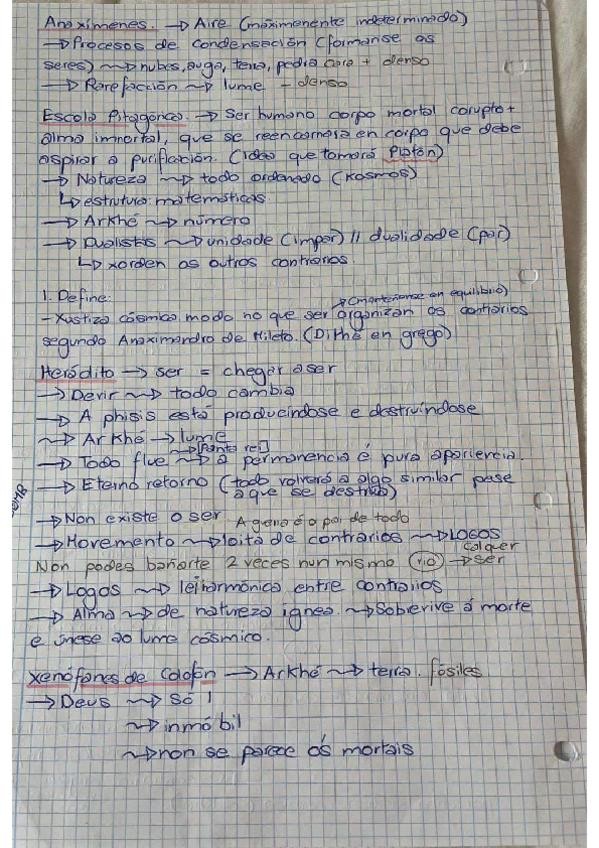 Anaxímenes. → Aire (máximenente indeterminado)
→ Procesos de condensación (formanse os
seres) ~> nubes, auga, terra, pedra cara + denso
→ Rarefacción ~> lume - denso
Escola Pitagórica. → Ser humano corpo mortal corupto +
alma inmortal, que se reencarnará en corpo que debe
aspirar a purificación. (Idea que tomará Platón)
→ Natureza ~> todo ordenado (Kosmos)
↳ estrutura matemáticas
→ Arkhé ~> número
→ Dualistas ~> unidade (impar) // dualidade (par)
↳ xorden os outros contrarios.
1. Define:
→ (mantéñense en equilibrio)
- Xustiza cósmica modo no que ser organizan os contrarios
segundo Anaximandro de Mileto. (Dithé en grego)
Heródito → ser = chegar a ser
→ Devir ~> todo cambia
→ A phisis está producíndose e destruíndose
~> Arkhé → lume
~> [Panta rei]
→ Todo flue ~> a permanencia é pura apariencia.
→ Eterno retorno (todo volverá a algo similar pase
a que se destrúa)
→ Non existe o ser A guerra é o pai de todo
→ Movemento ~> loita de contrarios ~> LOGOS
calquer
Non podes bañarte 2 veces nun mismo río → ser
→ Logos ~> lei harmónica entre contrarios
→ Alma ~> de natureza ígnea. ~> Sobrevive á morte
e únese ao lume cósmico.
Xenófanes de Colofón → Arkhé ~> terra. fósiles
→ Deus ~> Só 1
~> inmóbil
~> non se parece ós mortais